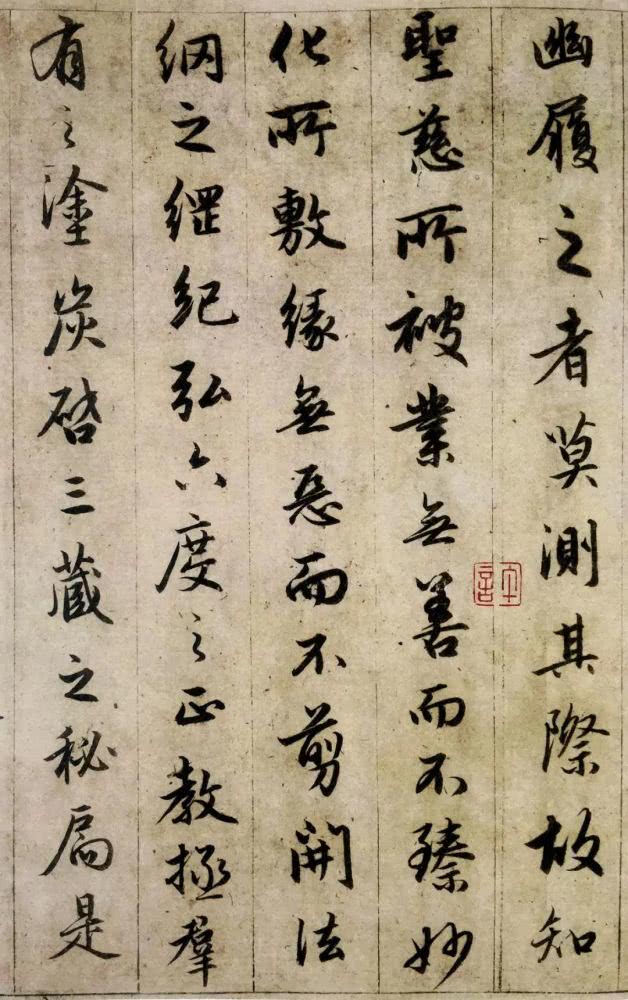 幽履之者莫測其際故知
聖慈所被業無善而不臻妙
化所敷緣無惡而不剪開法
網之綱紀弘六度之正教拯羣
有之塗炭啓三藏之秘扃是